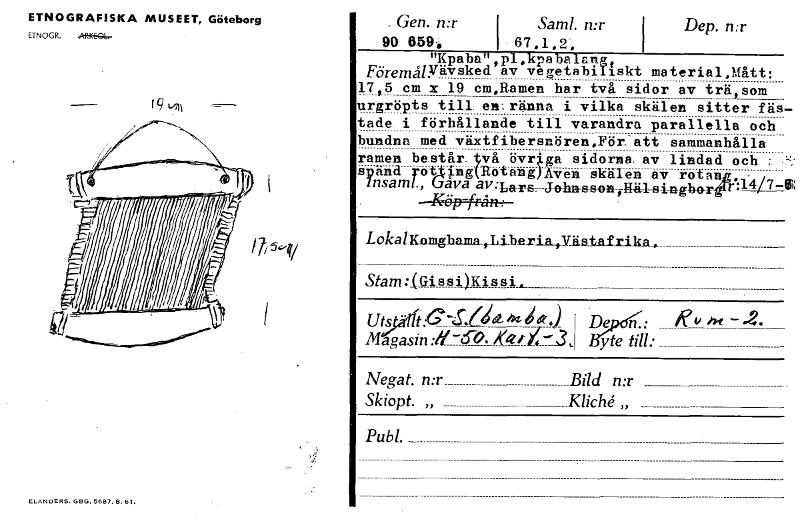 ETNOGRAFISKA MUSEET, Göteborg
ETNOGR. ARKEOL.
19 cm
17,5 cm
ELANDERS. GBG. 5687. 8. 61.
Gen. n:r Saml. n:r Dep. n:r
90 659. 67.1.2.
"Kpaba", pl.kpabalang,
Föremål: Vävsked av vegetabiliskt material,Mått:
17,5 cm x 19 cm,Ramen har två sidor av trä,som
urgröpts till en ränna i vilka skälen sitter fäs-
tade i förhållande till varandra parallella och
bundna med växtfibersnören,För att sammanhålla
ramen består två övriga sidorna av lindad och
spänd rotting(Rotang)Även skälen av rotang
Insaml., Gåva av: Lars Johnsson,Hälsingborg 14/7-
Köp från:
Lokal Komgbama,Liberia,Västafrika.
Stam:(Gissi)Kissi.
Utställt: G-S.(bamba.) Depon.: Rum-2.
Magasin: H-50. Kart.-3. Byte till:
Negat. n:r Bild n:r
Skiopt. „ Kliché „
Publ.